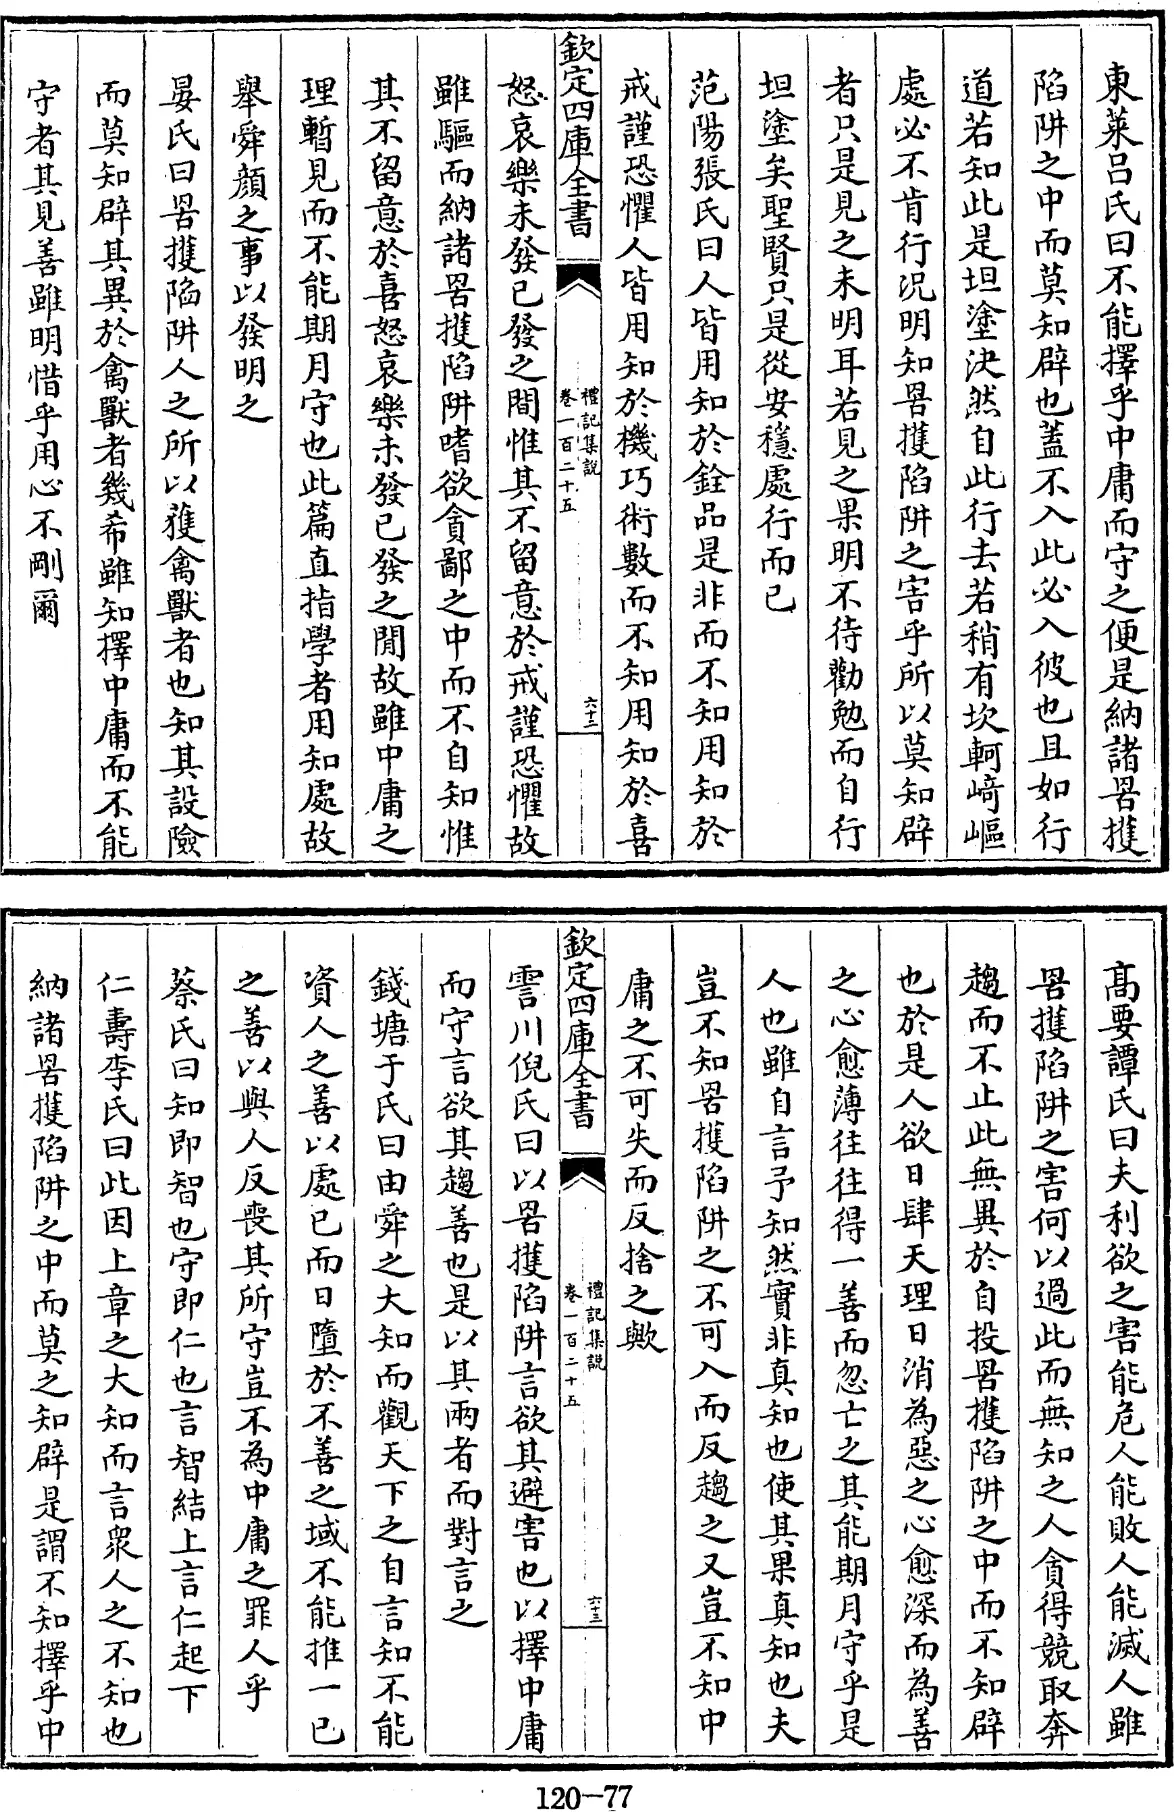 東萊呂氏曰不能擇乎中庸而守之便是納諸罟擭
陷阱之中而莫知辟也蓋不入此必入彼也且如行
道若知此是坦塗決然自此行去若稍有坎軻崎嶇
處必不肯行況明知罟擭陷阱之害乎所以莫知辟
者只是見之未明耳若見之果明不待勸勉而自行
坦塗矣聖賢只是從安穩處行而已
范陽張氏曰人皆用知於銓品是非而不知用知於
戒謹恐懼人皆用知於機巧術數而不知用知於喜
欽定四庫全書
禮記集說
卷一百二十五
六十二
怒哀樂未發已發之間惟其不留意於戒謹恐懼故
雖驅而納諸罟擭陷阱嗜欲貪鄙之中而不自知惟
其不留意於喜怒哀樂未發已發之閒故雖中庸之
理暫見而不能期月守也此篇直指學者用知處故
舉舜顏之事以發明之
晏氏曰罟擭陷阱人之所以獲禽獸者也知其設險
而莫知辟其異於禽獸者幾希雖知擇中庸而不能
守者其見善雖明惜乎用心不剛爾
髙要譚氏曰夫利欲之害能危人能敗人能滅人雖
罟擭陷阱之害何以過此而無知之人貪得競取奔
趨而不止此無異於自投罟擭陷阱之中而不知辟
也於是人欲日肆天理日消為惡之心愈深而為善
之心愈薄往往得一善而忽亡之其能期月守乎是
人也雖自言予知然實非真知也使其果真知也夫
豈不知罟擭陷阱之不可入而反趨之又豈不知中
庸之不可失而反捨之歟
欽定四庫全書
禮記集說
卷一百二十五
六十三
霅川倪氏曰以罟擭陷阱言欲其避害也以擇中庸
而守言欲其趨善也是以其兩者而對言之
錢塘于氏曰由舜之大知而觀天下之自言知不能
資人之善以處已而日墮於不善之域不能推一已
之善以與人反喪其所守豈不為中庸之罪人乎
蔡氏曰知即智也守即仁也言智結上言仁起下
仁壽李氏曰此因上章之大知而言衆人之不知也
納諸罟擭陷阱之中而莫之知辟是謂不知擇乎中
120-77